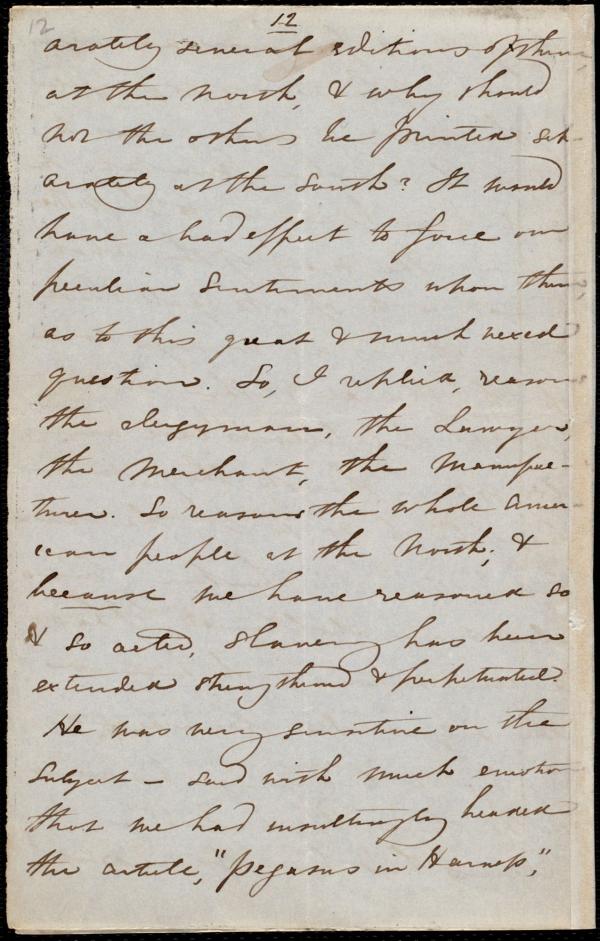 12
12
arately several editions of them,
at the North, & why should
not the others be printed sep-
arately at the South? It would
have a bad effect to force our
peculiar sentiments upon them,
as to this great & much vexed
question. So, I replied, reasons
the clergyman, the Lawyer,
the Merchant, the Manufac-
turer. So reasons the whole Amer-
ican people at the North; &
because we have reasoned so
& so acted, slavery has been
extended strengthened & perpetuated.
He was very sensitive on the
subject – said with much emotion
that we had insultingly headed
the article, "Pegasus in Harness,"